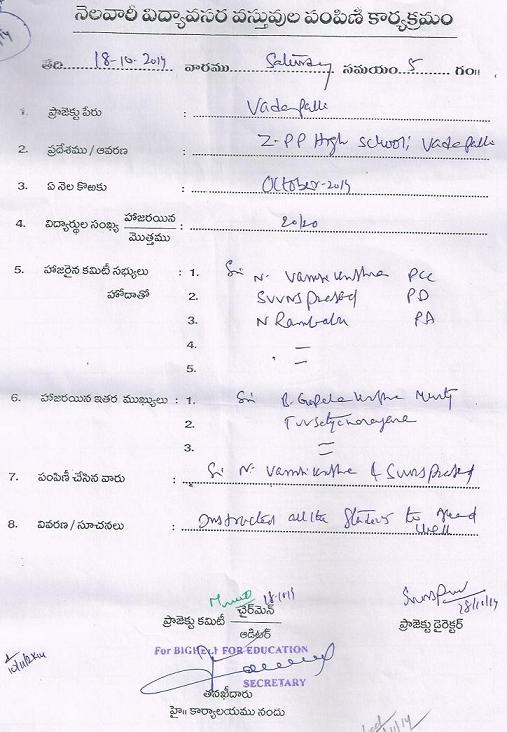 నెలవారీ విద్యావసర వస్తువుల పంపిణీ కార్యక్రమం
తేది 18-10-2014 వారము Saturday సమయం 5 గం॥
1. ప్రాజెక్టు పేరు : Vadapalli
2. ప్రదేశము / ఆవరణ : Z.PP High School, Vadapalli
3. ఏ నెల కొఱకు : October-2014
4. విద్యార్థుల సంఖ్య హాజరయిన / మొత్తము : 20/20
5. హాజరైన కమిటీ సభ్యులు : 1. Sri N. Vamsi Krishna PCC
హోదాతో 2. SVVNS Prasad PD
3. N Rambabu PA
4. =
5. =
6. హాజరయిన ఇతర ముఖ్యులు : 1. Sri B. Gopala Krishna Murty
2. TVV Satyanarayana
3. =
7. పంపిణీ చేసిన వారు : Sri N. Vamsi Krishna & SVVNS Prasad
8. వివరణ / సూచనలు : Instructed all the Students to read
well
18/10/14
ప్రాజెక్టు కమిటీ ఛైర్మెన్ / ఆడిటర్
28/11/14
ప్రాజెక్టు డైరెక్టర్
For BIGHELP FOR EDUCATION
SECRETARY
తనఖీదారు
హై॥ కార్యాలయము నందు